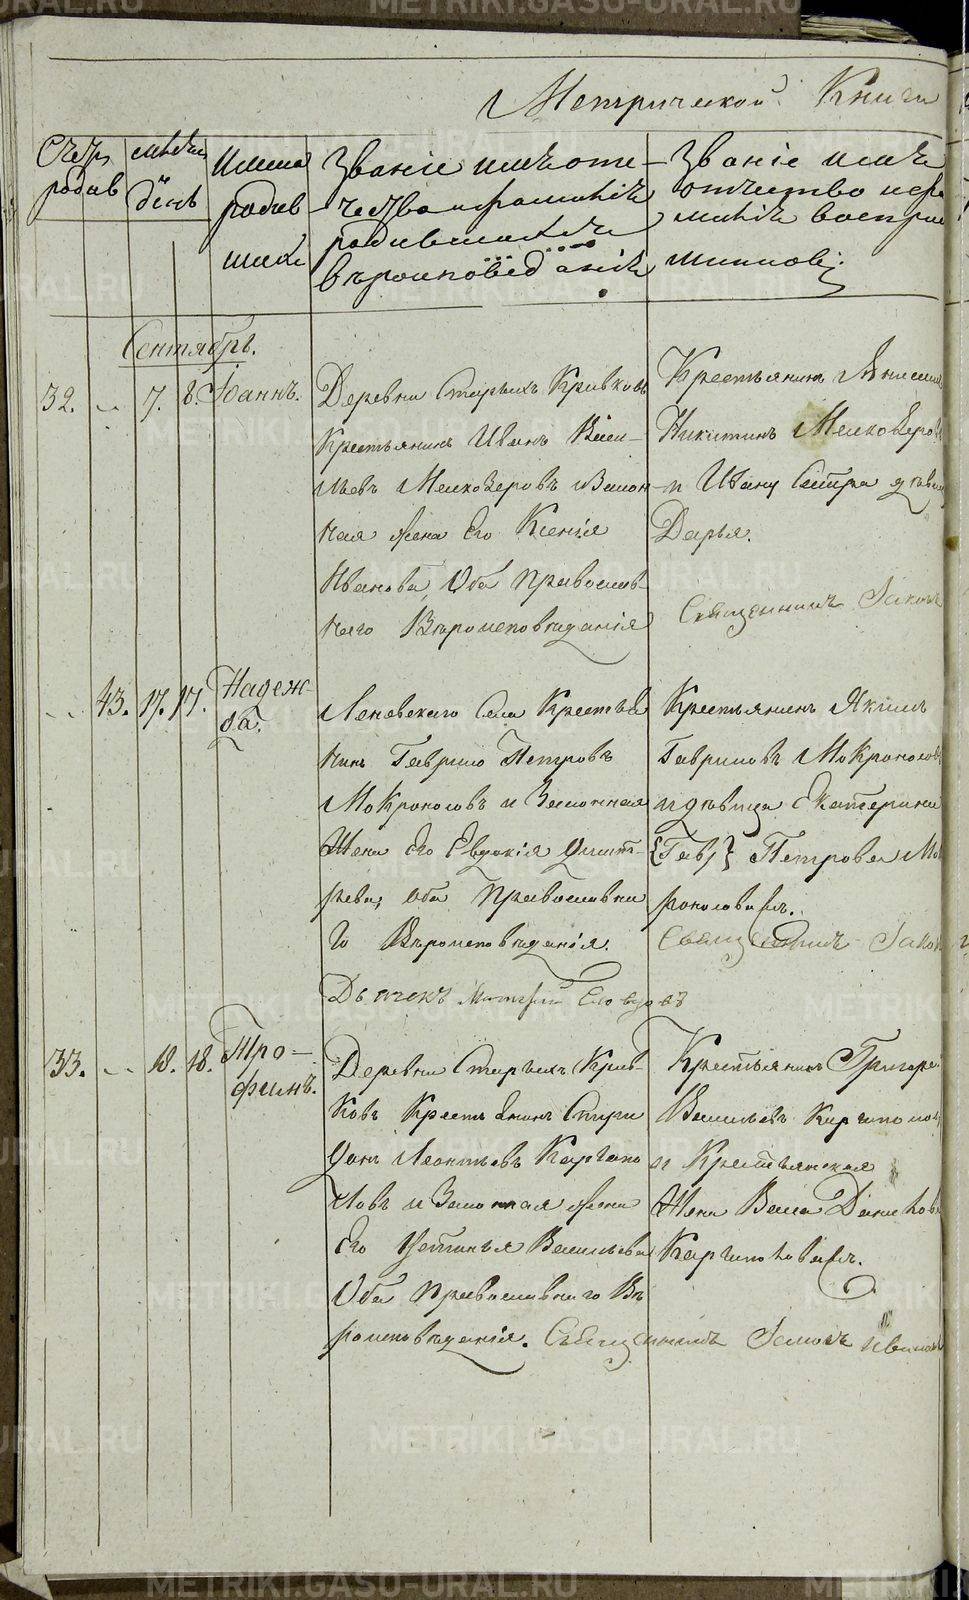 Метрической Книги
Счетъ родив
мѣсяцъ и день
Имена родив шихся
Званіе имя оте-
чество и фамилія
родившихъ
вѣроисповѣданія
Званіе имя
отчество и фа
милія воспрі
имниковъ.
Сентябрь.
32. „ 7. 8. Іоаннъ.
Деревни Старыхъ Кривковъ
Крестьянинъ Иванъ Васи-
льевъ Мелкозеровъ и Закон
ная жена Его Ксенія
Иванова, Оба православ-
наго Вѣроисповѣданія
Крестьянинъ
Никитинъ Мелкозеров
и Ивану Сестра дѣвица
Дарья.
Священникъ Іаковъ
„ 43. 17. 17. Надеж-
да.
Села Крестья
нинъ Гаврило Петровъ
Мокроносовъ и Законная
Жена Его Евдокія Дмит-
рева, оба Православна
го Вѣроисповѣданія.
Крестьянинъ Якимъ
Гавриловъ Мокроносовъ
и дѣвица Екатерина
{Гавр} Петрова Мок
роносовыхъ.
Священникъ Іаковъ
Дьячекъ
33. „ 18. 18. Тро-
фимъ.
Деревни Старыхъ Крив
ковъ Крестьянинъ Спири
донъ Леонтьевъ Каргапо
ловъ и Законная Жена
Его Устинья Васильева
Оба Православнаго Вѣ
роисповѣданія. Священникъ Іаковъ Иванов
Крестьянинъ Григоре
Васильевъ Каргаполов
и Крестьянская
Жена Васса Данилова
Каргаполовыхъ.
METRIKI.GASO-URAL.RU